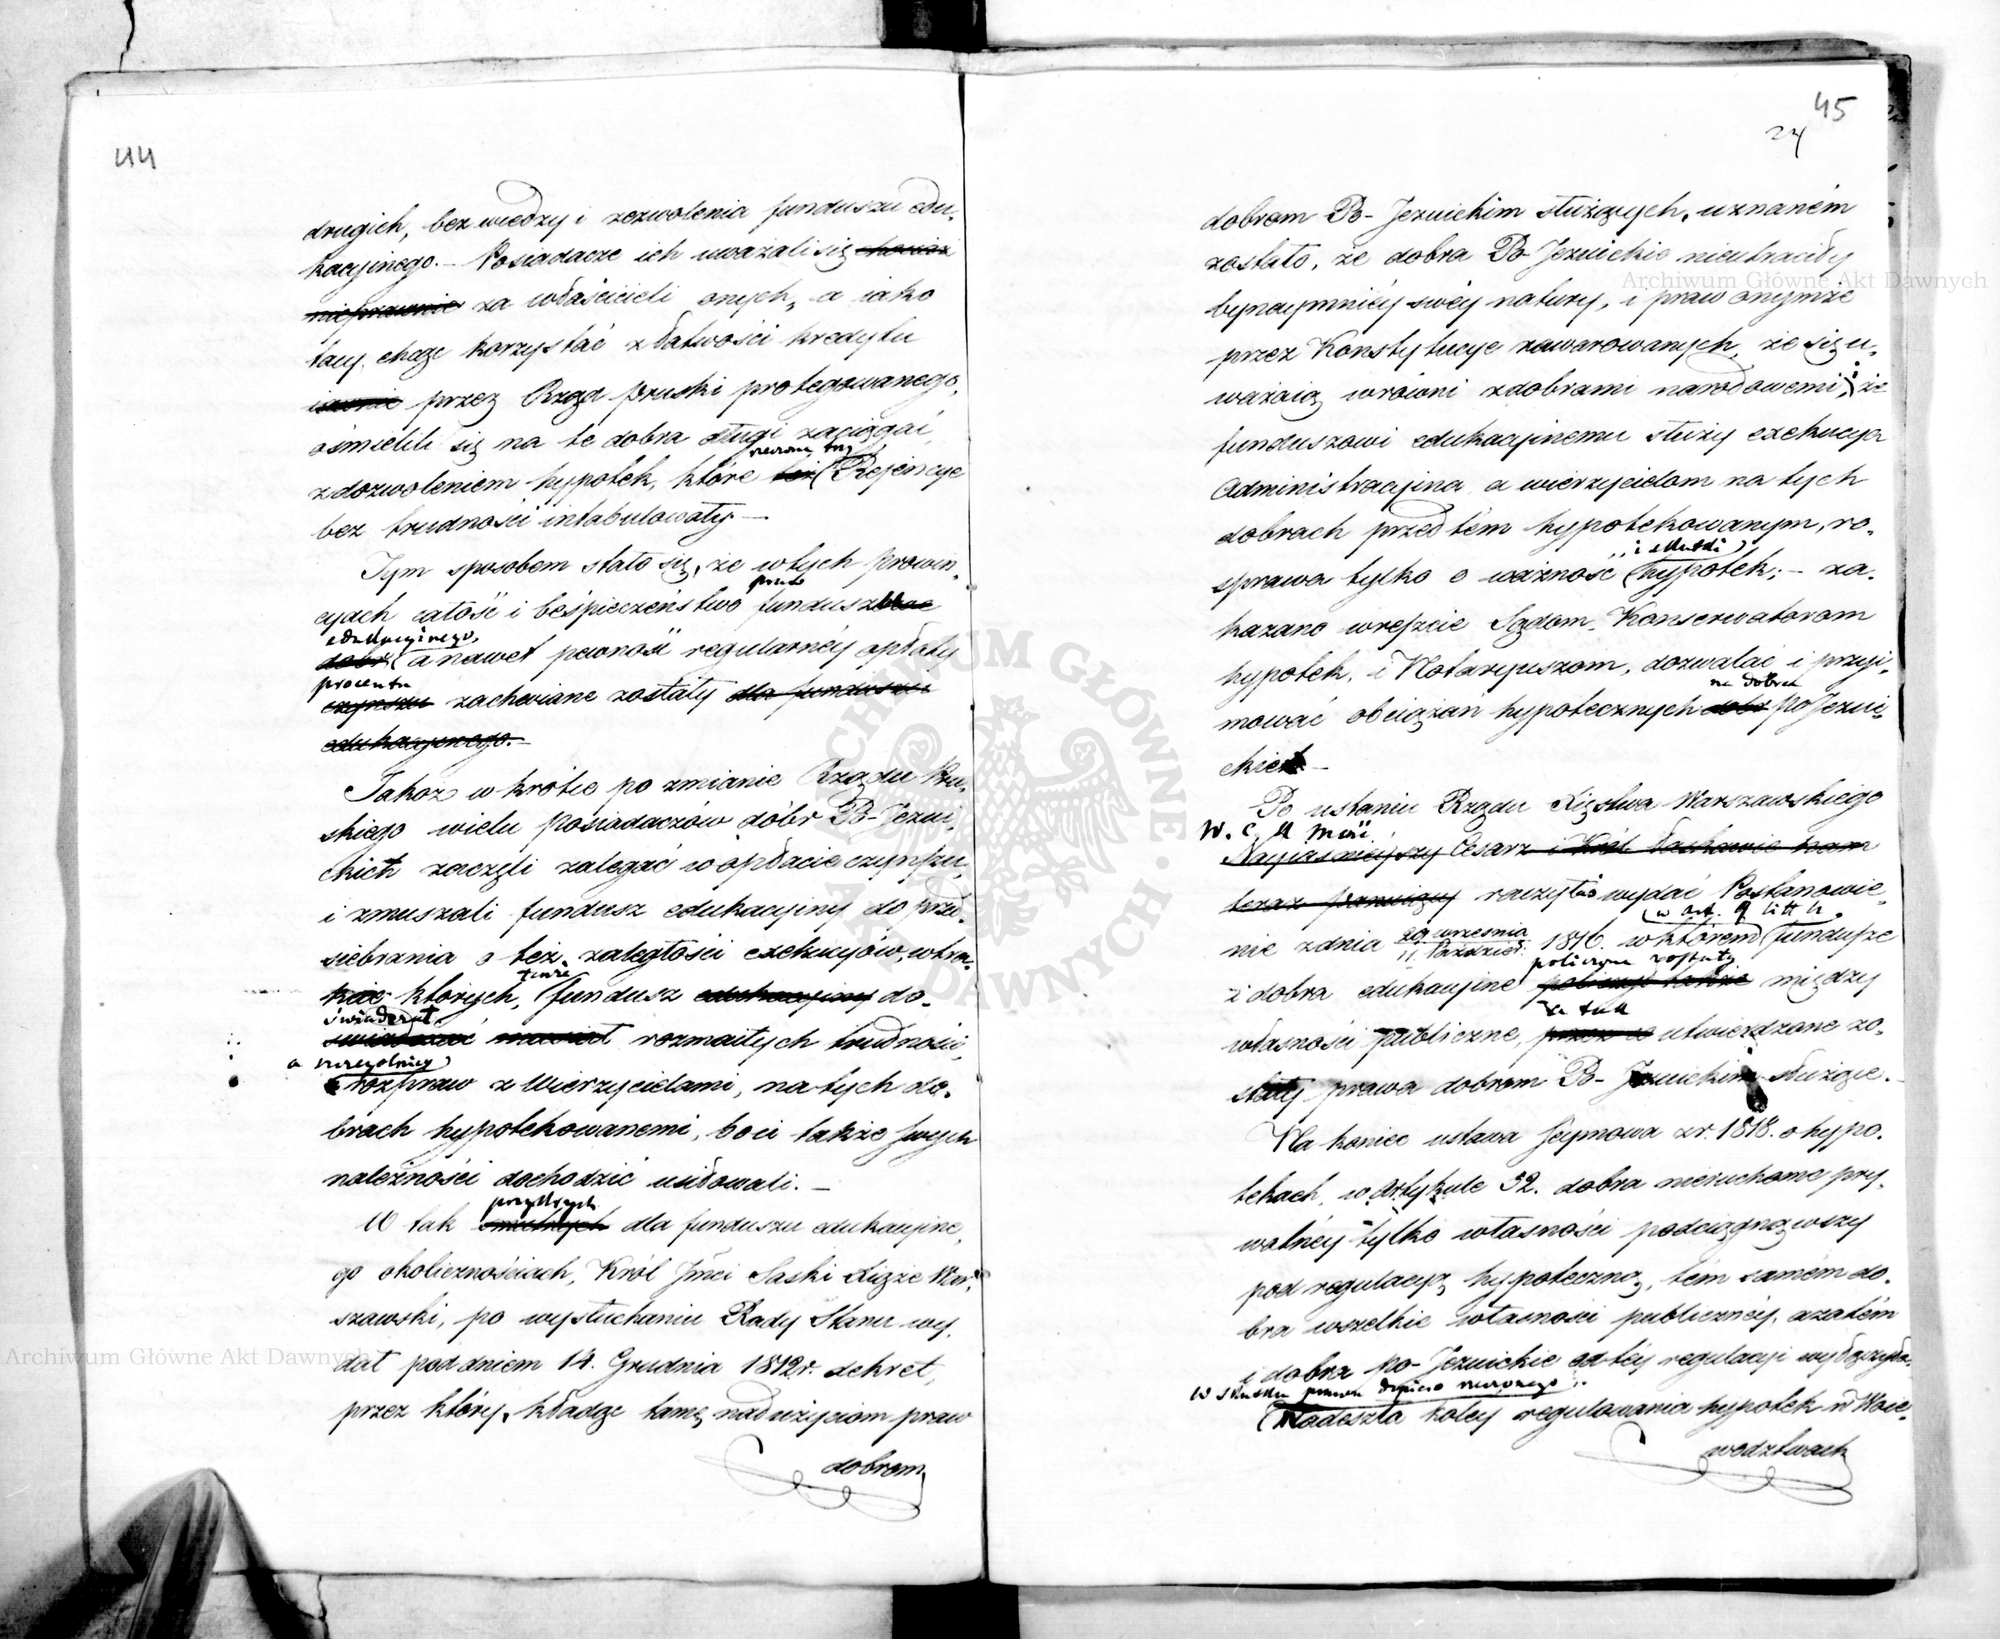 44
drugich, bez wiedzy i zezwolenia funduszu edu-
kacyjnego. – Posiadacze ich uważali się chociaż
nieprawnie za właścicieli onych, a iako
tacy, chcąc korzystać z łatwości kredytu
przez Rząd pruski protegowanego,
ośmielili się na te dobra długi zaciągać,
rzeczone trzy
z dozwoleniem hypotek, które też Rejencye
bez trudności intabulowały. –
Tym sposobem stało się, że w tych prowin-
przeto
cyach całość i bespieczeństwo fundusz
edukacyinego,
dobr a nawet pewność regularnéy opłaty
procentu
czynszu zachwiane zostały dla funduszu
edukacyinego. –
Jakoż w krótce po zmianie Rządu Pru-
skiego wielu posiadaczów dóbr Po-Jezui-
ckich zaczęli zalegać w opłacie czynszu,
i zmuszali fundusz edukacyiny do przed-
siebrania o też zaległości exekucyiów, w tra-
kcie których, tenże fundusz edukacyiny do-
świadczał
świadczać musiał rozmaitych trudności,
a szczególniey
rozpraw z Wierzycielami, na tych do-
brach hypotekowanemi, bo ci także swych
należności dochodzić usiłowali. –
przykrych
W tak smutnych dla funduszu edukacyine-
go okolicznościach, Król Jmći Saski Xiąże War-
szawski, po wysłuchaniu Rady Stanu wy-
dał pod dniem 14. Grudnia 1812 r. dekret,
przez który, kładąc tamę nadużyciom praw
dobrom
45
24
dobrom Po-Jezuickim służących, uznaném
zostało, że dobra Po Jezuickie nieutraciły
bynaymniéy swéy natury, i praw onymże
przez Konstytucye zawarowanych, że się u-
ważaią w równi z dobrami narodowemi; że
funduszowi edukacyinemu służy exekucya
Administracyina, a wierzycielom na tych
dobrach przedtém hypotekowanym, ro-
i skutki
sprawa tylko o ważność hypotek; – za-
kazano wreszcie Sądom, Konserwatorom
hypotek, i Notaryuszom, dozwalać i przyi-
na dobrach
mować obciążań hypotecznych dobr Po Jezui-
ckich –
Po ustaniu Rządu Xięstwa Warszawskiego
N. C. K Mość
Nayiaśnieyszy Cesarz i Król łaskawie nam
teraz panuiący raczył wydać Postanowie-
w Art. 9 litt h.
nie z dnia 29 września / 11 Paździer: 1816. w którém fundusze
policzone zostały
i dobra edukacyine policzył także między
że tak
własności publiczne, przez co utwierdzone zo-
stały prawa dobrom Po-Jezuickim służące. –
Na koniec ustawa Seymowa z r. 1818. o hypo-
tekach, w Artykule 32. dobra nieruchome pry-
watnéy tylko własności podciągnąwszy
pod regulacyą hypoteczną, tém samém do-
bra wszelkie własności publicznéy, a zatém
i dobra po-Jezuickie od téy regulacyi wyłączyła.
W skutku prawa dopiero rzeczonego
Nadeszła koley regulowania hypotek w Woie-
wodztwach
Archiwum Główne Akt Dawnych
Archiwum Główne Akt Dawnych
ARCHIWUM GŁÓWNE AKT DAWNYCH